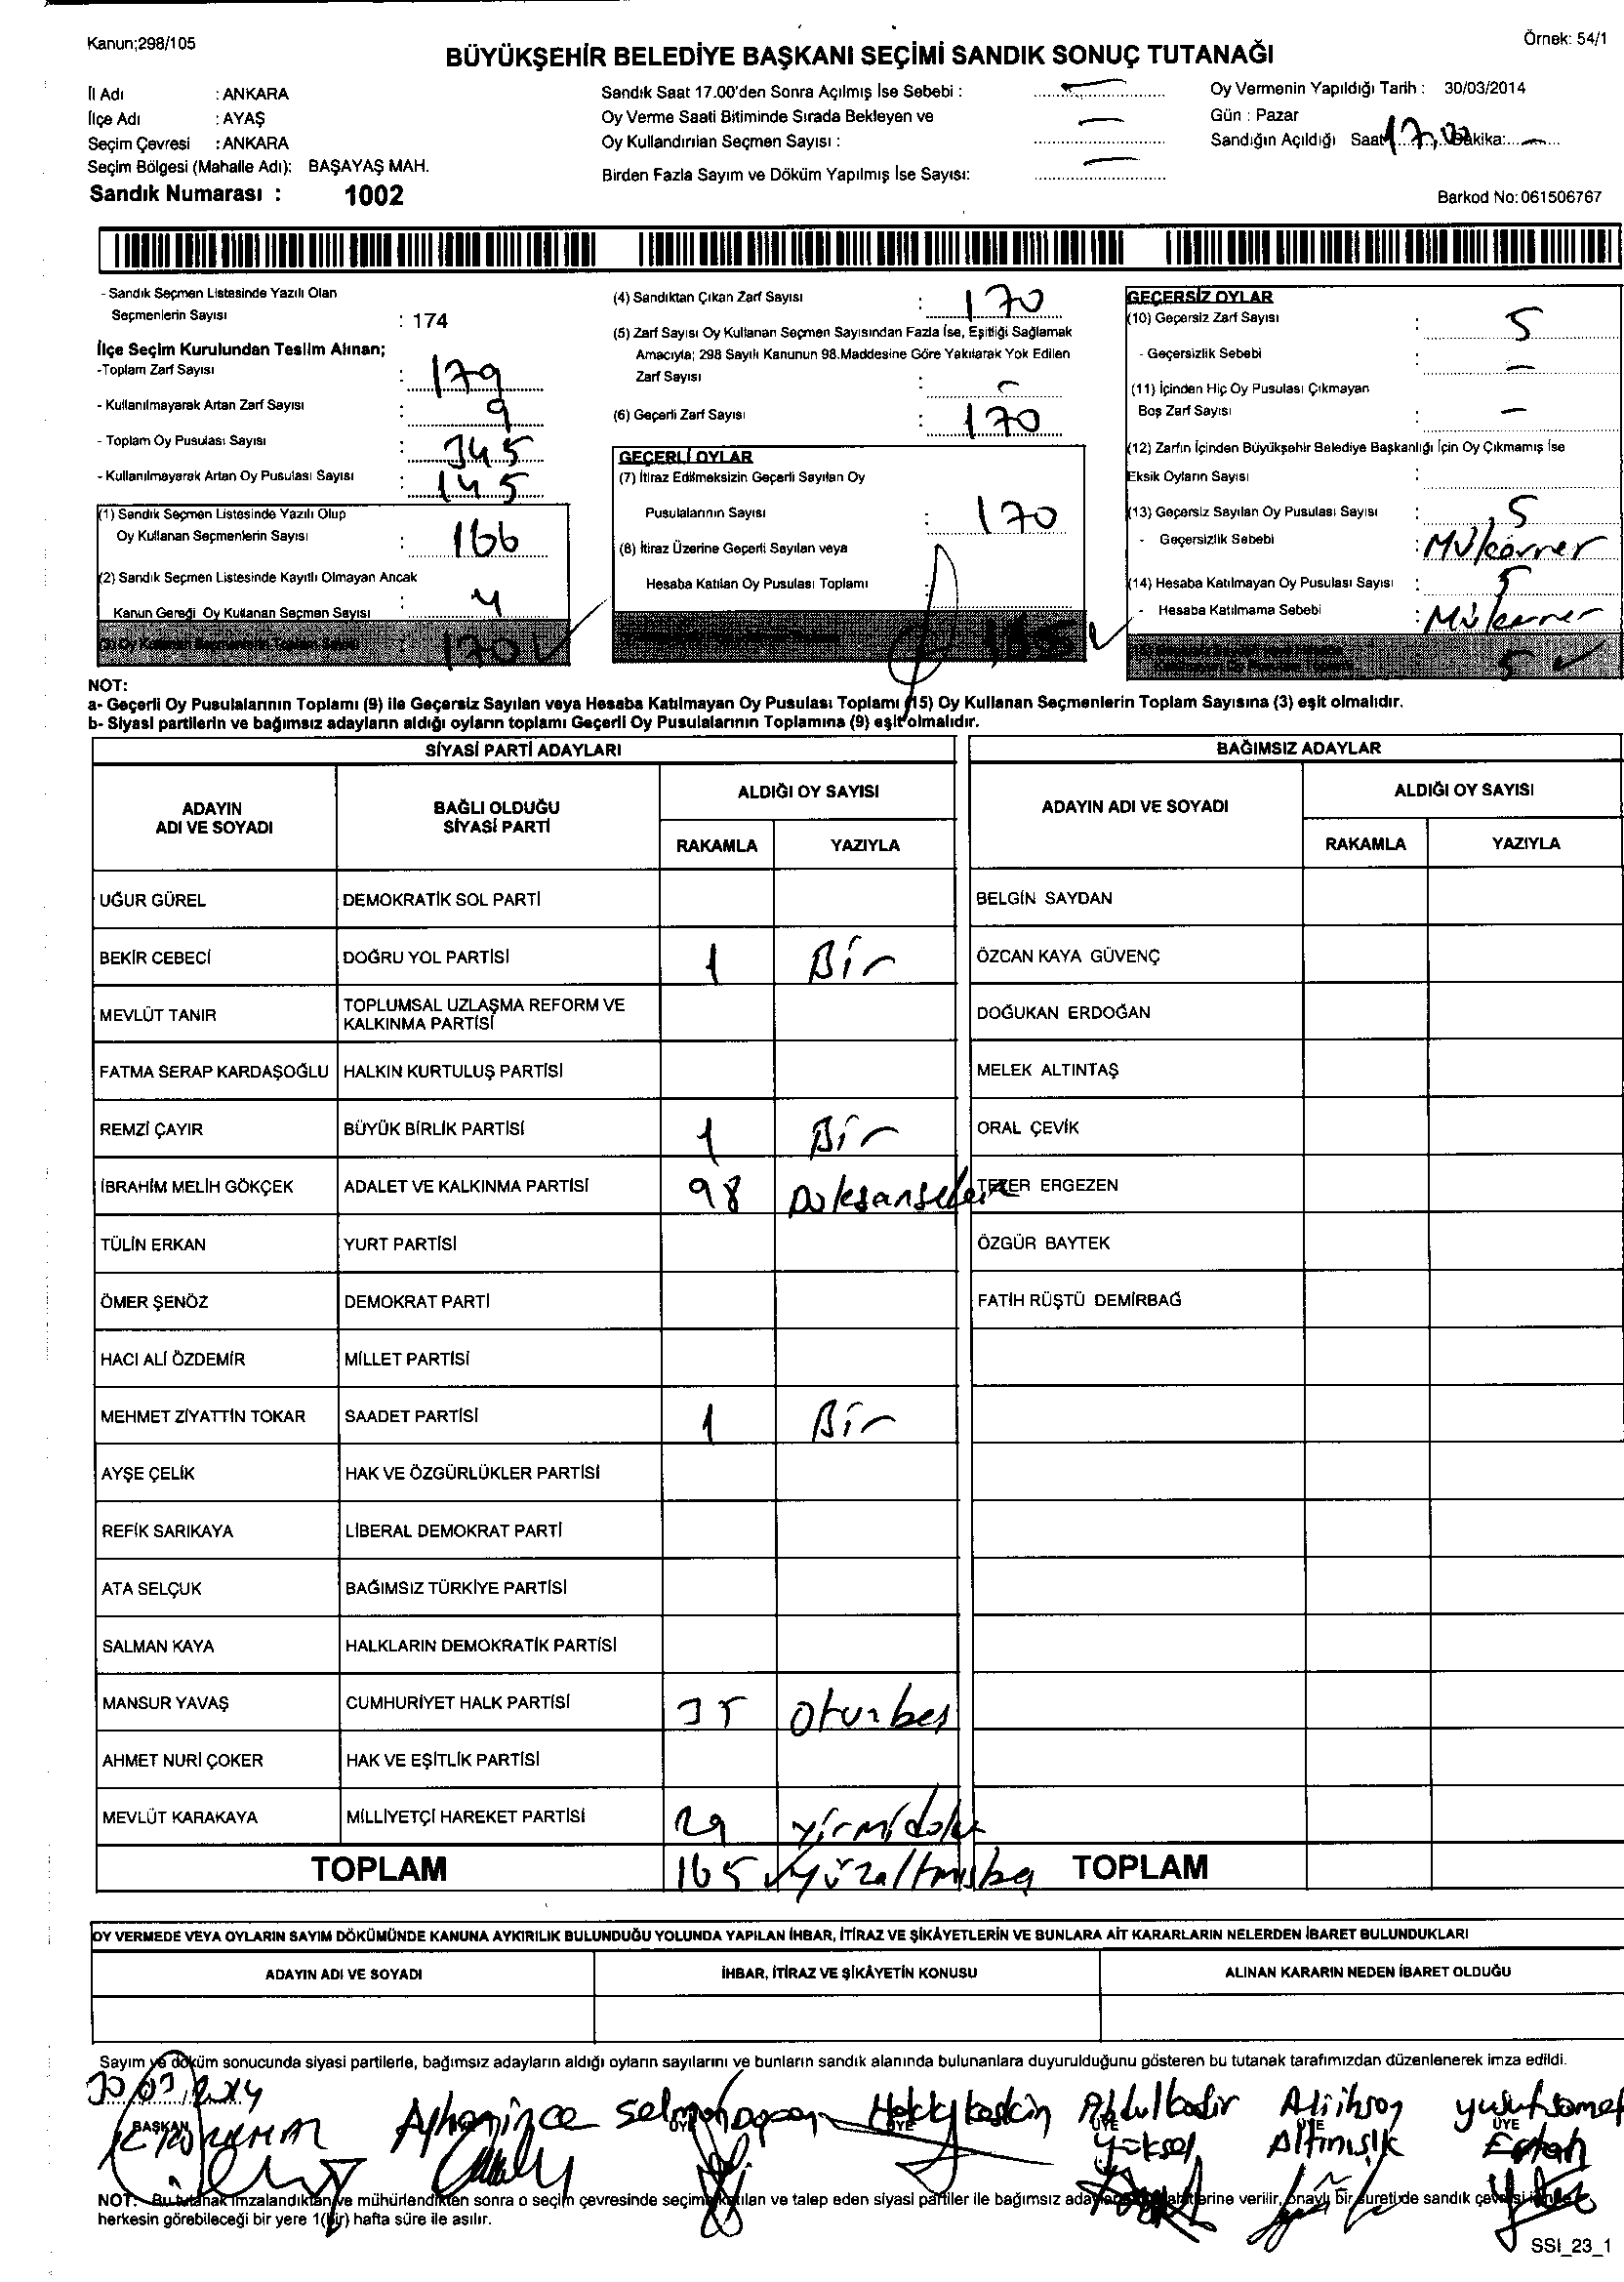 Kanun;298/105
Örnek: 54/1
BÜYÜKŞEHİR BELEDİYE BAŞKANI SEÇİMİ SANDIK SONUÇ TUTANAĞI
İl Adı : ANKARA
İlçe Adı : AYAŞ
Seçim Çevresi : ANKARA
Seçim Bölgesi (Mahalle Adı): BAŞAYAŞ MAH.
Sandık Numarası : 1002
Sandık Saat 17.00'den Sonra Açılmış İse Sebebi : —
Oy Verme Saati Bitiminde Sırada Bekleyen ve —
Oy Kullandırılan Seçmen Sayısı :
Birden Fazla Sayım ve Döküm Yapılmış İse Sayısı: —
Oy Vermenin Yapıldığı Tarih : 30/03/2014
Gün : Pazar
Sandığın Açıldığı Saat 17,00 Dakika: —
Barkod No: 061506767
- Sandık Seçmen Listesinde Yazılı Olan
Seçmenlerin Sayısı : 174
İlçe Seçim Kurulundan Teslim Alınan;
-Toplam Zarf Sayısı : 179
- Kullanılmayarak Artan Zarf Sayısı : 9
- Toplam Oy Pusulası Sayısı : 345
- Kullanılmayarak Artan Oy Pusulası Sayısı : 145
(1) Sandık Seçmen Listesinde Yazılı Olup
Oy Kullanan Seçmenlerin Sayısı : 166
(2) Sandık Seçmen Listesinde Kayıtlı Olmayan Ancak
Kanun Gereği Oy Kullanan Seçmen Sayısı : 4
(3) Oy Kullanan Seçmenlerin Toplam Sayısı : 170
(4) Sandıktan Çıkan Zarf Sayısı : 170
(5) Zarf Sayısı Oy Kullanan Seçmen Sayısından Fazla İse, Eşitliği Sağlamak
Amacıyla; 298 Sayılı Kanunun 98.Maddesine Göre Yakılarak Yok Edilen
Zarf Sayısı : –
(6) Geçerli Zarf Sayısı : 170
GEÇERLİ OYLAR
(7) İtiraz Edilmeksizin Geçerli Sayılan Oy
Pusulalarının Sayısı : 170
(8) İtiraz Üzerine Geçerli Sayılan veya
Hesaba Katılan Oy Pusulası Toplamı :
165
GEÇERSİZ OYLAR
(10) Geçersiz Zarf Sayısı : 5
- Geçersizlik Sebebi : —
(11) İçinden Hiç Oy Pusulası Çıkmayan
Boş Zarf Sayısı : —
(12) Zarfın İçinden Büyükşehir Belediye Başkanlığı İçin Oy Çıkmamış İse
Eksik Oyların Sayısı :
(13) Geçersiz Sayılan Oy Pusulası Sayısı : 5
- Geçersizlik Sebebi :
(14) Hesaba Katılmayan Oy Pusulası Sayısı : 5
- Hesaba Katılmama Sebebi :
5
NOT:
a- Geçerli Oy Pusulalarının Toplamı (9) ile Geçersiz Sayılan veya Hesaba Katılmayan Oy Pusulası Toplamı (15) Oy Kullanan Seçmenlerin Toplam Sayısına (3) eşit olmalıdır.
b- Siyasi partilerin ve bağımsız adayların aldığı oyların toplamı Geçerli Oy Pusulalarının Toplamına (9) eşit olmalıdır.
SİYASİ PARTİ ADAYLARI
ADAYIN ADI VE SOYADI
BAĞLI OLDUĞU SİYASİ PARTİ
ALDIĞI OY SAYISI
RAKAMLA YAZIYLA
UĞUR GÜREL DEMOKRATİK SOL PARTİ
BEKİR CEBECİ DOĞRU YOL PARTİSİ 1 Bir
MEVLÜT TANIR TOPLUMSAL UZLAŞMA REFORM VE
KALKINMA PARTİSİ
FATMA SERAP KARDAŞOĞLU HALKIN KURTULUŞ PARTİSİ
REMZİ ÇAYIR BÜYÜK BİRLİK PARTİSİ 1 Bir
İBRAHİM MELİH GÖKÇEK ADALET VE KALKINMA PARTİSİ 98 Doksansekiz
TÜLİN ERKAN YURT PARTİSİ
ÖMER ŞENÖZ DEMOKRAT PARTİ
HACI ALİ ÖZDEMİR MİLLET PARTİSİ
MEHMET ZİYATTİN TOKAR SAADET PARTİSİ 1 Bir
AYŞE ÇELİK HAK VE ÖZGÜRLÜKLER PARTİSİ
REFİK SARIKAYA LİBERAL DEMOKRAT PARTİ
ATA SELÇUK BAĞIMSIZ TÜRKİYE PARTİSİ
SALMAN KAYA HALKLARIN DEMOKRATİK PARTİSİ
MANSUR YAVAŞ CUMHURİYET HALK PARTİSİ 35 Otuzbeş
AHMET NURİ ÇOKER HAK VE EŞİTLİK PARTİSİ
MEVLÜT KARAKAYA MİLLİYETÇİ HAREKET PARTİSİ 29 yirmidokuz
TOPLAM 165 yüzaltmışbeş
BAĞIMSIZ ADAYLAR
ADAYIN ADI VE SOYADI
ALDIĞI OY SAYISI
RAKAMLA YAZIYLA
BELGİN SAYDAN
ÖZCAN KAYA GÜVENÇ
DOĞUKAN ERDOĞAN
MELEK ALTINTAŞ
ORAL ÇEVİK
TEZER ERGEZEN
ÖZGÜR BAYTEK
FATİH RÜŞTÜ DEMİRBAĞ
TOPLAM
OY VERMEDE VEYA OYLARIN SAYIM DÖKÜMÜNDE KANUNA AYKIRILIK BULUNDUĞU YOLUNDA YAPILAN İHBAR, İTİRAZ VE ŞİKÂYETLERİN VE BUNLARA AİT KARARLARIN NELERDEN İBARET BULUNDUKLARI
ADAYIN ADI VE SOYADI İHBAR, İTİRAZ VE ŞİKÂYETİN KONUSU ALINAN KARARIN NEDEN İBARET OLDUĞU
Sayım ve döküm sonucunda siyasi partilerle, bağımsız adayların aldığı oyların sayılarını ve bunların sandık alanında bulunanlara duyurulduğunu gösteren bu tutanak tarafımızdan düzenlenerek imza edildi.
30/03/2014
BAŞKAN ÜYE ÜYE ÜYE ÜYE ÜYE
Hakkı Keskin Abdulkadir Yüksel Ali ihsan Altınışık
NOT: Bu tutanak imzalandıktan ve mühürlendikten sonra o seçim çevresinde seçime katılan ve talep eden siyasi partiler ile bağımsız aday verilir, onaylı bir sureti de sandık çevresi
herkesin görebileceği bir yere 1(bir) hafta süre ile asılır.
SSI_23_1